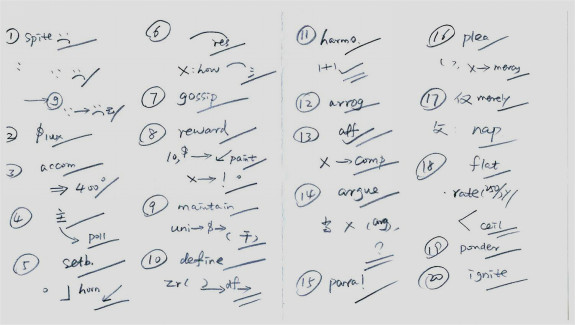 ① spite
⑨
② $lux
③ accom
⇒ 400°
④ 主
→ poll
⑤ setb.
horn
⑥ res
X: how
⑦ gossip
⑧ reward
10,$ → paint
X → !
⑨ maintain
uni → $ → (干)
⑩ define
zr( ) → df →
⑪ harmo.
1+1
⑫ arrog
⑬ aff
X → comp
⑭ argue
X (arg),
?
⑮ parra!
⑯ plea
X → mercy
⑰ 仅 merely
反: nap
⑱ flat
rate
< coil
⑲ ponder
⑳ ignite